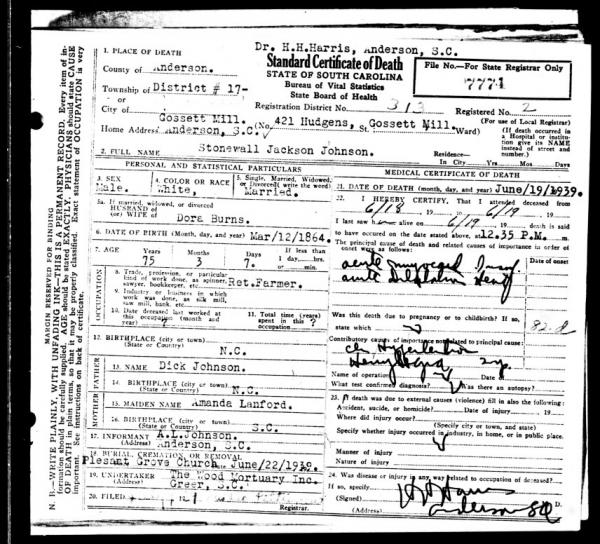 Dr. H.H.Harris, Anderson, S.C.
1. PLACE OF DEATH
County of Anderson.
Township of District # 17-
or
City of
Gossett Mill.
Home Address Anderson, S.C.
(No. 421 Hudgens, St. Gossett Mill. Ward)
Standard Certificate of Death
STATE OF SOUTH CAROLINA
Bureau of Vital Statistics
State Board of Health
Registration District No. 313
File No.—For State Registrar Only
7774
Registered No. 2
(For use of Local Registrar)
(If death occurred in a Hospital or institution give its NAME instead of street and number.)
2. FULL NAME Stonewall Jackson Johnson.
Residence—In City Yrs. Mos. Days
PERSONAL AND STATISTICAL PARTICULARS
3. SEX
Male.
4. COLOR OR RACE
White,
5. Single, Married, Widowed, or Divorced (write the word)
Married.
5a. If married, widowed, or divorced
HUSBAND of
(or) WIFE of Dora Burns.
6. DATE OF BIRTH (Month, day, and year) Mar/12/1864.
7. AGE
75
Months
3
Days
7.
If less than
1 day, hrs.
or minutes
OCCUPATION
8. Trade, profession, or particular kind of work done, as spinner, sawyer, bookkeeper, etc. Ret.Farmer.
9. Industry or business in which work was done, as silk mill, saw mill, bank, etc.
10. Date deceased last worked at this occupation (month and year) ?
11. Total time (years) spent in this occupation ?
12. BIRTHPLACE (city or town)
(State or Country) N.C.
FATHER
13. NAME Dick Johnson.
14. BIRTHPLACE (city or town)
(State or Country) N.C.
MOTHER
15. MAIDEN NAME Amanda Lanford.
16. BIRTHPLACE (city or town)
(State or Country) S.C.
17. INFORMANT A.L.Johnson.
(Address) Anderson, S.C.
18. BURIAL, CREMATION, OR REMOVAL
Plesant Grove Church June/22/1939
19. UNDERTAKER The Wood Mortuary Inc.
(Address) Greer, S.C.
20. FILED
Registrar.
MEDICAL CERTIFICATE OF DEATH
21. DATE OF DEATH (month, day, and year) June/19/1939.
22. I HEREBY CERTIFY, That I attended deceased from
6/18 19 to 6/19 19
I last saw h alive on 6/19 19 death is said
to have occurred on the date stated above, at 12.35 P.M. m.
The principal cause of death and related causes of importance in order of onset were as follows:
Date of onset
Was this death due to pregnancy or to childbirth? If so,
state which
Contributory causes of importance not related to principal cause:
Name of operation Date of
What test confirmed diagnosis? Was there an autopsy?
23. If death was due to external causes (violence) fill in also the following:
Accident, suicide, or homicide? Date of injury 19
Where did injury occur?
(Specify city or town, and state)
Specify whether injury occurred in industry, in home, or in public place.
Manner of injury
Nature of injury
24. Was disease or injury in any way related to occupation of deceased?
If so, specify
(Signed)
(Address) Anderson SC
MARGIN RESERVED FOR BINDING
N. B.—WRITE PLAINLY, WITH UNFADING INK—THIS IS A PERMANENT RECORD. Every item of information should be carefully supplied. AGE should be stated EXACTLY. PHYSICIANS should state CAUSE OF DEATH in plain terms, so that it may be properly classified. Exact statement of OCCUPATION is very important. See instructions on back of certificate.